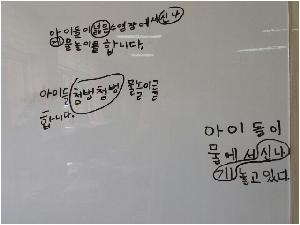 아이들이 넓은 수영장에서 신나
게 물놀이를 합니다.
아이들 첨벙첨벙 물놀이를
합니다.
아이들이
물에서 신나
게 놀고 있다